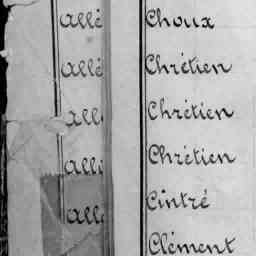 Allé Choux
Allé Chrétien
All Chrétien
Allé Chrétien
Allé Cintré
Clément